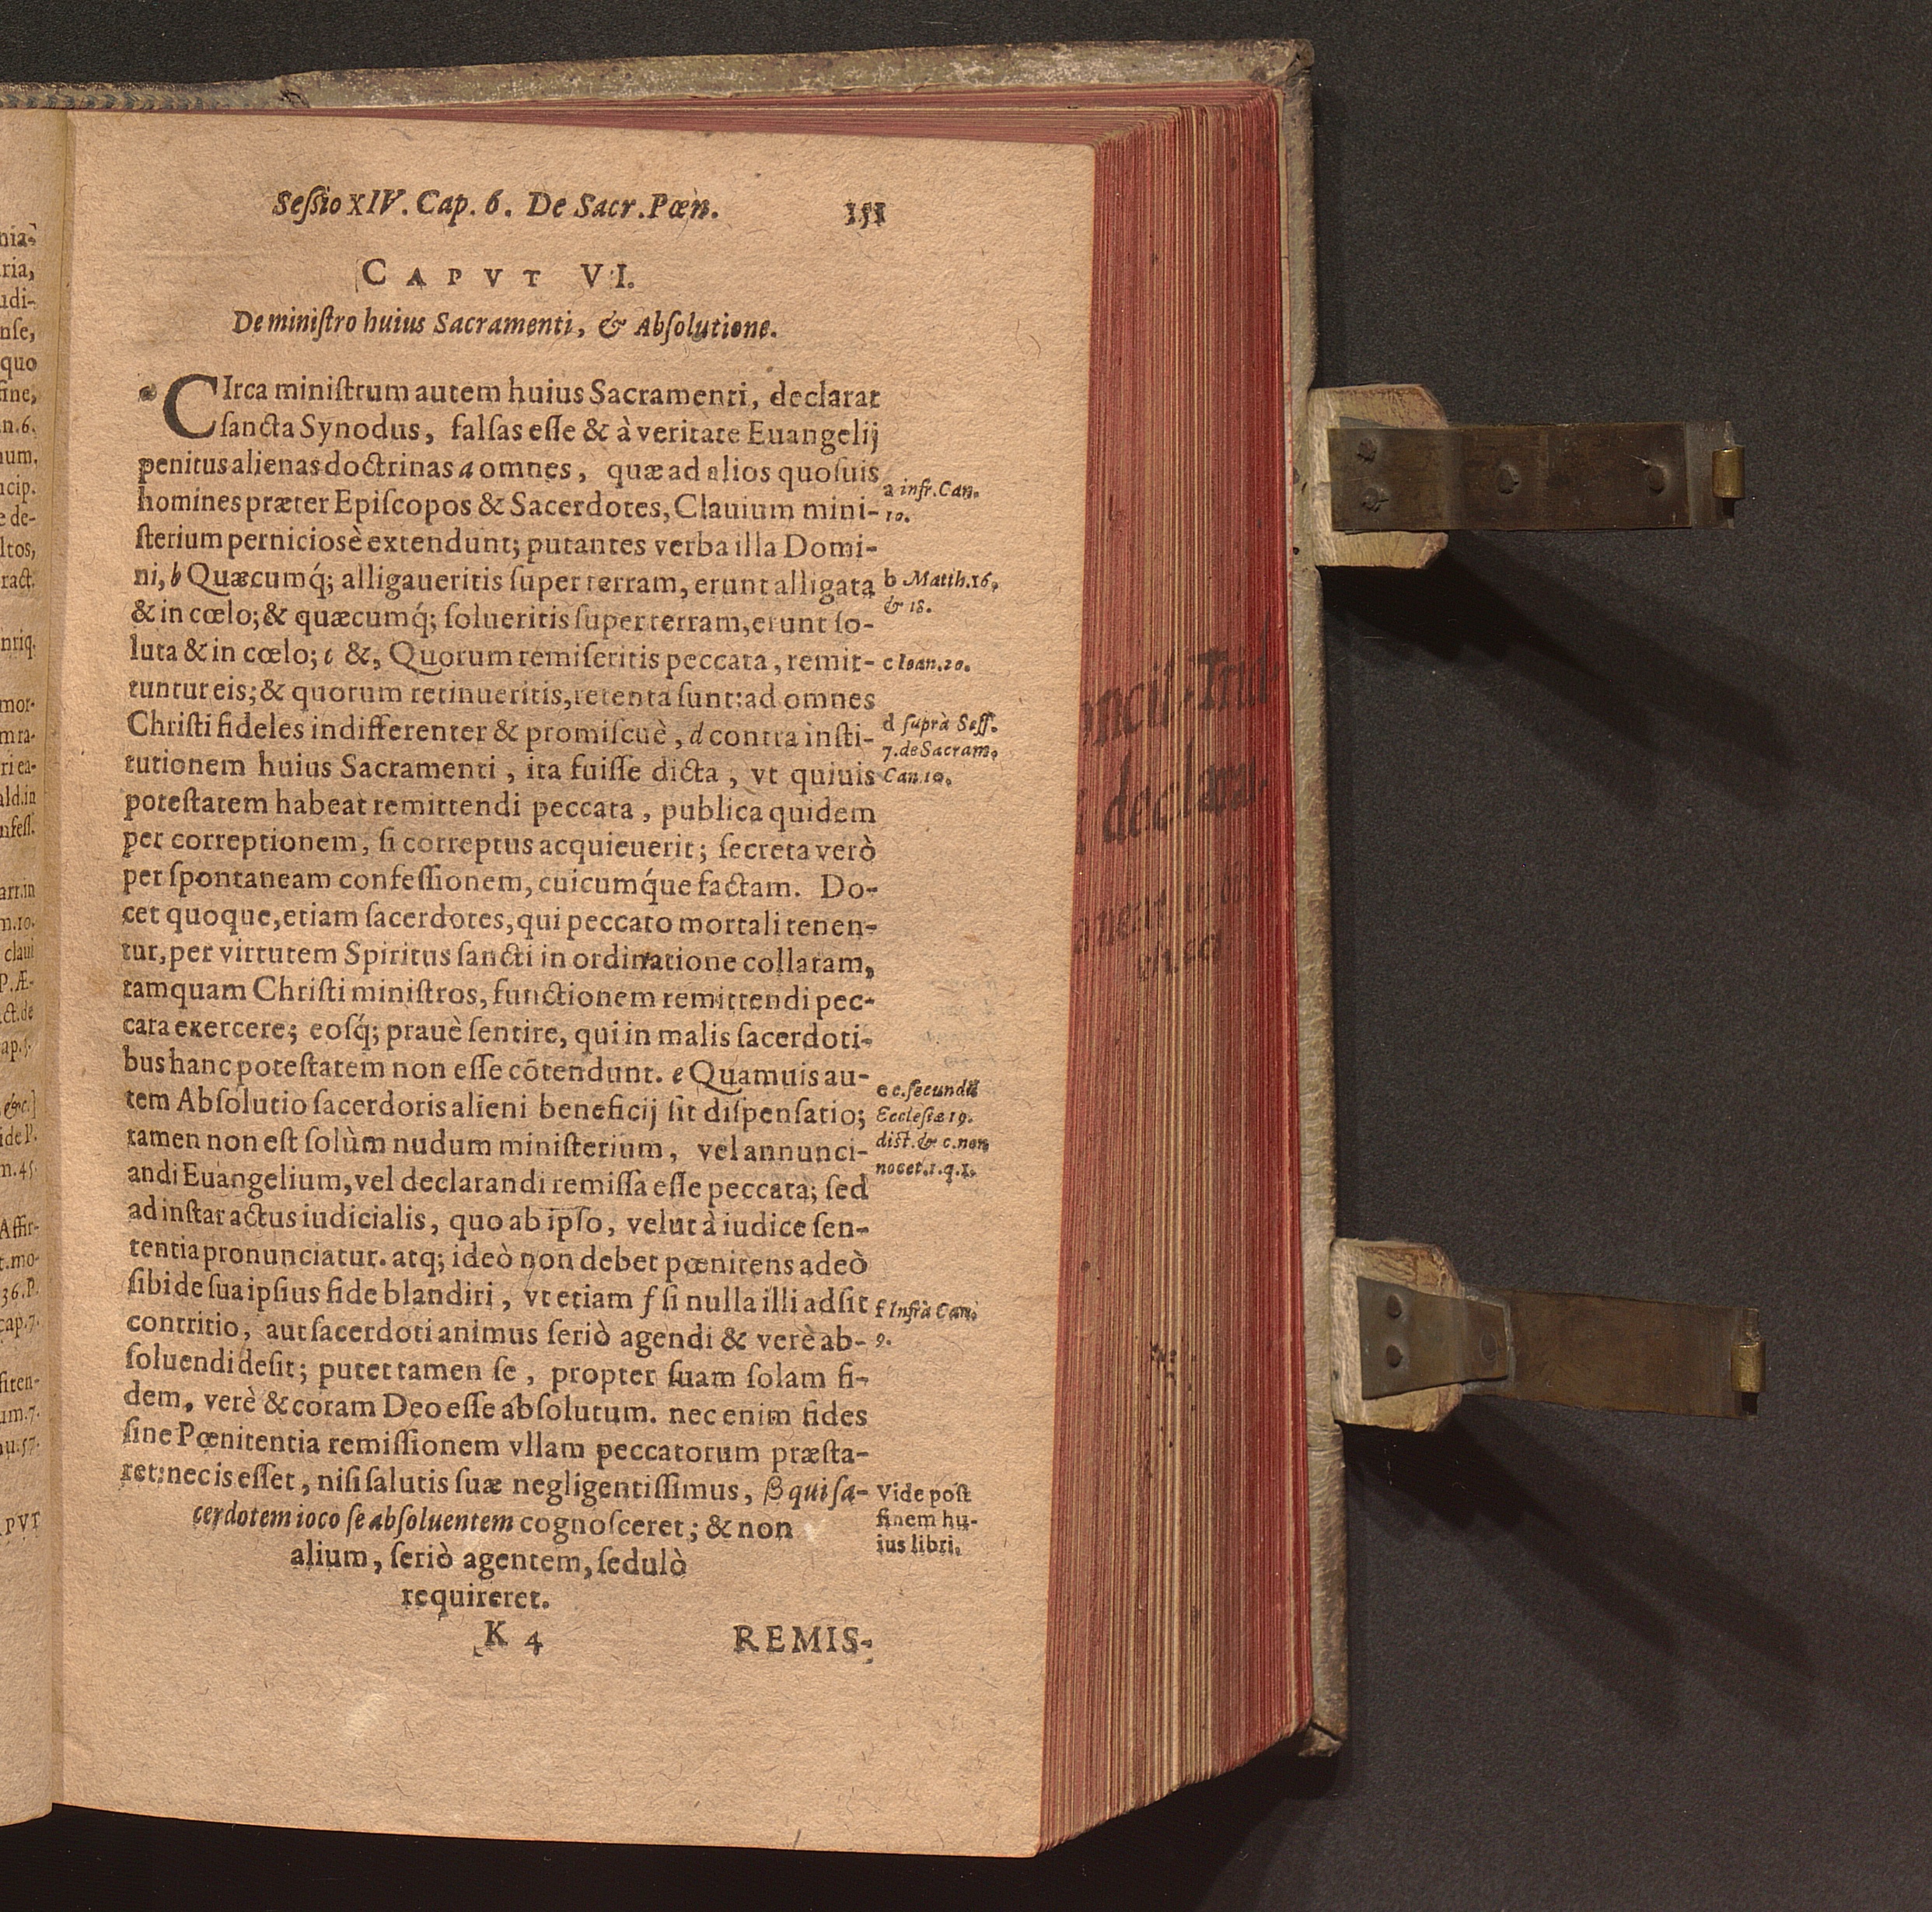 Seſſio XIV. Cap. 6. De Sacr. Pœn. 151
CAPVT VI.
De miniſtro huius Sacramenti, & Abſolutione.
CIrca miniſtrum autem huius Sacramenti, declarat
ſancta Synodus, falſas eſſe & à veritate Euangelij
penitus alienas doctrinas a omnes, quæ ad alios quoſuis
homines præter Epiſcopos & Sacerdotes, Clauium mini-
ſterium perniciosè extendunt; putantes verba illa Domi-
ni, b Quæcumq́; alligaueritis ſuper terram, erunt alligata
& in cœlo; & quæcumq́; ſolueritis ſuper terram, erunt ſo-
luta & in cœlo; c &, Quorum remiſeritis peccata, remit-
tuntur eis; & quorum retinueritis, retenta ſunt: ad omnes
Chriſti fideles indifferenter & promiſcuè, d contra inſti-
tutionem huius Sacramenti, ita fuiſſe dicta, vt quiuis
poteſtatem habeat remittendi peccata, publica quidem
per correptionem, ſi correptus acquieuerit; ſecreta verò
per ſpontaneam confeſſionem, cuicumq́ue factam. Do-
cet quoque, etiam ſacerdotes, qui peccato mortali tenen-
tur, per virtutem Spiritus ſancti in ordinatione collatam,
tamquam Chriſti miniſtros, functionem remittendi pec-
cata exercere; eoſq́; prauè ſentire, qui in malis ſacerdoti-
bus hanc poteſtatem non eſſe cōtendunt. e Quamuis au-
tem Abſolutio ſacerdotis alieni beneficij ſit diſpenſatio;
tamen non eſt ſolùm nudum miniſterium, vel annunci-
andi Euangelium, vel declarandi remiſſa eſſe peccata; ſed
ad inſtar actus iudicialis, quo ab ipſo, velut à iudice ſen-
tentia pronunciatur. atq; ideò non debet pœnitens adeò
ſibi de ſua ipſius fide blandiri, vt etiam f ſi nulla illi adſit
contritio, aut ſacerdoti animus ſeriò agendi & verè ab-
ſoluendi deſit; putet tamen ſe, propter ſuam ſolam fi-
dem, verè & coram Deo eſſe abſolutum. nec enim fides
ſine Pœnitentia remiſſionem vllam peccatorum præſta-
ret: nec is eſſet, niſi ſalutis ſuæ negligentiſſimus, β qui ſa-
cerdotem ioco ſe abſoluentem cognoſceret; & non
alium, ſeriò agentem, ſedulò
requireret.
K 4 REMIS-
a infr. Can.
10.
b Matth. 16.
& 18.
c Ioan. 20.
d ſuprà Seſſ.
7. de Sacram.
Can. 10.
e c. ſecundū
Eccleſiæ 19.
diſt. & c. non
nocet. 1. q. 1.
f Infrà Can.
9.
Vide poſt
finem hu-
ius libri.
declara.